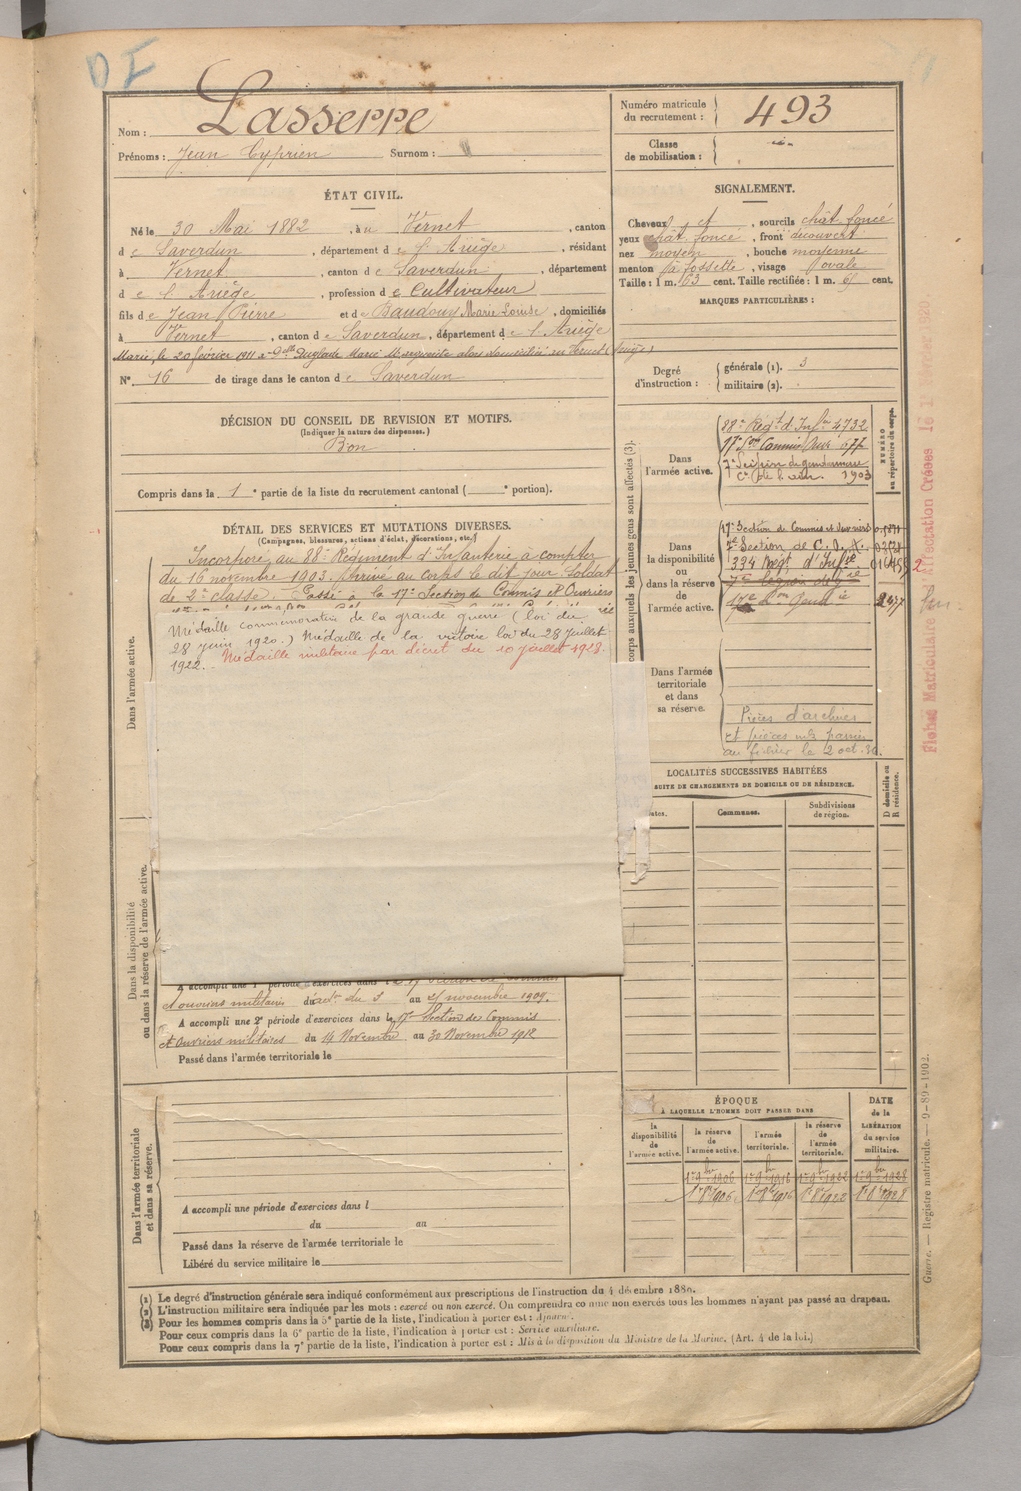 Nom : Lasserre
Prénoms : Jean Cyprien Surnom :
Numéro matricule du recrutement : 493
Classe de mobilisation :
ÉTAT CIVIL.
Né le 30 Mai 1882, à Vernet, canton
de Saverdun, département de l'Ariège, résidant
à Vernet, canton de Saverdun, département
de l'Ariège, profession de Cultivateur
fils de Jean Pierre et de Baudouy Marie Louise, domiciliés
à Vernet, canton de Saverdun, département de l'Ariège
Marié le 20 février 1911 à Dlle Anglade Marie
N° 16 de tirage dans le canton de Saverdun
SIGNALEMENT.
Cheveux et, sourcils chât. foncé
yeux chât. foncé, front découvert
nez moyen, bouche moyenne
menton à fossette, visage ovale
Taille : 1 m. 63 cent. Taille rectifiée : 1 m. 61 cent.
MARQUES PARTICULIÈRES :
Degré d'instruction : générale (1). 3
militaire (2).
DÉCISION DU CONSEIL DE REVISION ET MOTIFS.
(Indiquer la nature des dispenses.)
Bon
Compris dans la 1e partie de la liste du recrutement cantonal ( e portion).
DÉTAIL DES SERVICES ET MUTATIONS DIVERSES.
(Campagnes, blessures, actions d'éclat, décorations, etc.)
Dans l'armée active.
Incorporé au 88e Régiment d'Infanterie à compter
du 16 novembre 1903. Arrivé au corps le dit jour. Soldat
de 2e classe. Passé à la 17e Section de Commis et Ouvriers
Médaille commémorative de la grande guerre (loi du
28 juin 1920.) Médaille de la victoire loi du 28 Juillet
1922. Médaille militaire par décret du 10 juillet 1928.
Dans la disponibilité
ou dans la réserve de l'armée active.
A accompli une 1e période d'exercices dans
et ouvriers militaires du 5 au 21 novembre 1909.
A accompli une 2e période d'exercices dans la 17e Section de Commis
et Ouvriers militaires du 14 Novembre au 30 Novembre 1912
Passé dans l'armée territoriale le
Dans l'armée territoriale
et dans sa réserve.
A accompli une période d'exercices dans l
du au
Passé dans la réserve de l'armée territoriale le
Libéré du service militaire le
corps auxquels les jeunes gens sont affectés (3).
NUMÉRO
au répertoire du corps.
Dans
l'armée active.
88e Régt d'Infie 4732
17e Son Commis Ouv 677
1903
Dans
la disponibilité
ou
dans la réserve
de
l'armée active.
17e Section de Commis et Ouvriers
7e Section de C. O. A.
334 Régt d'Infie
7e Légion de Gie
17e Lon Gend ie 2477
Dans l'armée
territoriale
et dans
sa réserve.
Pièces d'archives
et pièces mles passées
au fichier le 2 oct. 30.
LOCALITÉS SUCCESSIVES HABITÉES
SUITE DE CHANGEMENTS DE DOMICILE OU DE RÉSIDENCE.
Dates. Communes. Subdivisions de région.
D domicile ou
R résidence.
ÉPOQUE
À LAQUELLE L'HOMME DOIT PASSER DANS
DATE
de la
LIBÉRATION
du service
militaire.
la disponibilité de l'armée active.
la réserve de l'armée active.
l'armée territoriale.
la réserve de l'armée territoriale.
1er 9bre 1906 1er 9bre 1916 1er 9bre 1922 1er 9bre 1928
1er 8bre 1906 1er 8bre 1916 1er 8bre 1922 1er 8bre 1928
(1) Le degré d'instruction générale sera indiqué conformément aux prescriptions de l'instruction du 4 décembre 1889.
(2) L'instruction militaire sera indiquée par les mots : exercé ou non exercé. On comprendra comme non exercés tous les hommes n'ayant pas passé au drapeau.
(3) Pour les hommes compris dans la 5e partie de la liste, l'indication à porter est : Ajourné.
Pour ceux compris dans la 6e partie de la liste, l'indication à porter est : Service auxiliaire.
Pour ceux compris dans la 7e partie de la liste, l'indication à porter est : Mis à la disposition du Ministre de la Marine. (Art. 4 de la loi.)
Guerre. — Registre matricule. — 9-89-1902.